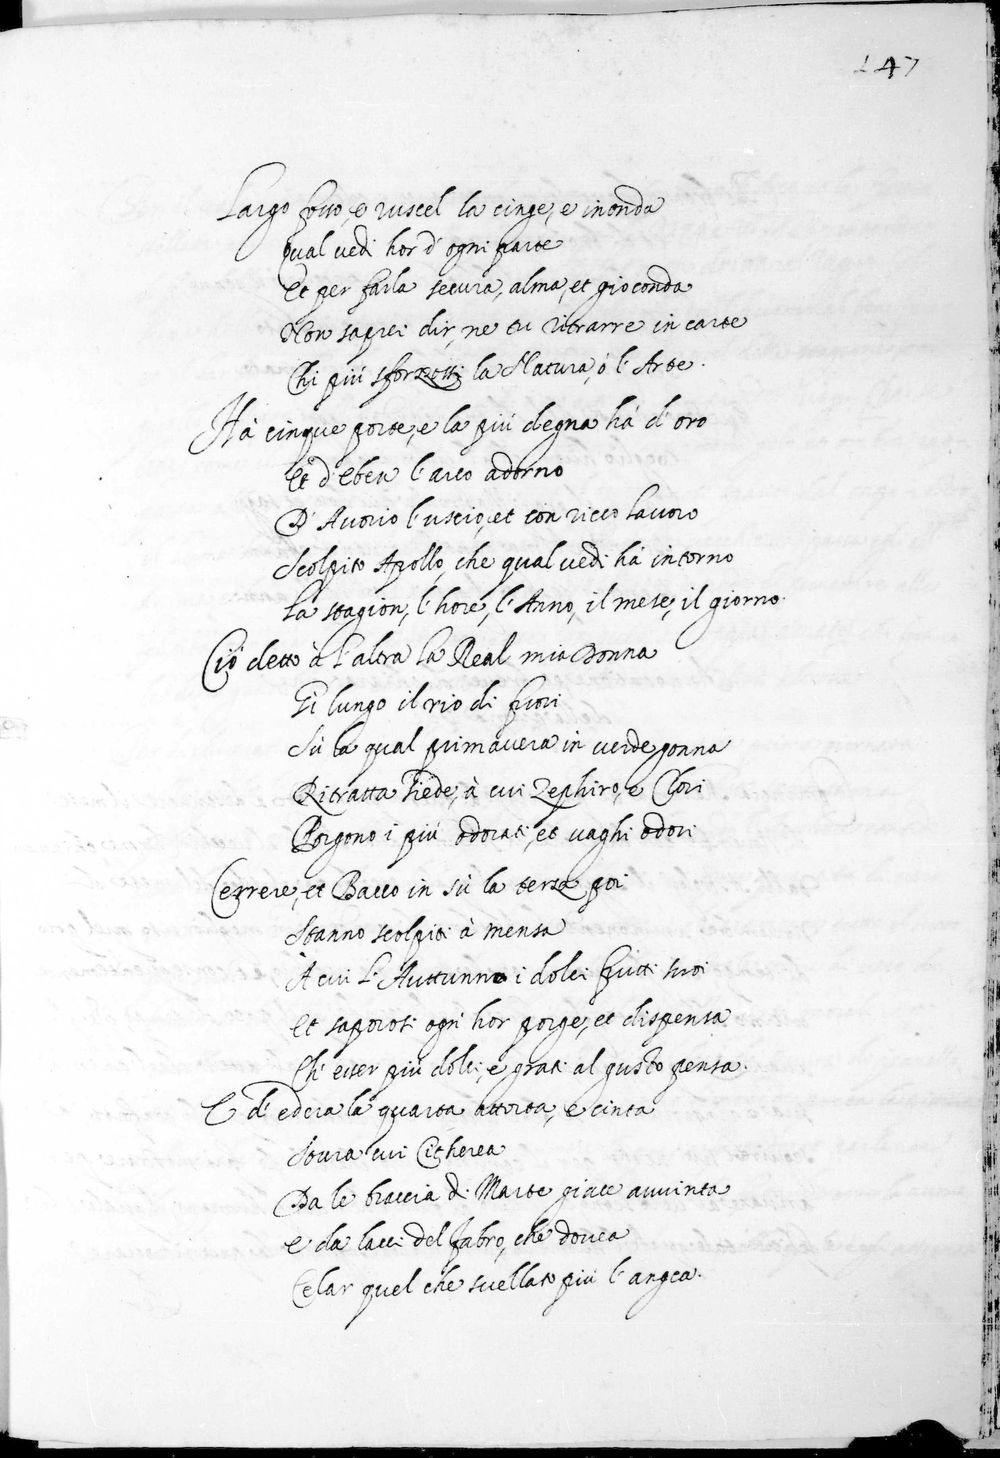 147
Largo fosso, e ruscel la cinge, e inonda
qual vedi hor d'ogni parte
Et per farla secura, alma, et gioconda
Non saprei dir, ne tu ritrarre in carte
Chi più sforzossi la Natura, ò l'Arte.
Hà cinque porte, e la più degna hà d'oro
Et d'Eben l'arco adorno
D'Avorio l'uscio, et con ricco lavoro
Scolpito Apollo, che qual vedi hà intorno
La stagion, l'hore, l'Anno, il mese, il giorno.
Ciò detto à l'altra la Real mia Donna
Gì lungo il rio di fuori
Sù la qual primavera in verde gonna
Ritratta siede, à cui Zephiro, e Clori
Porgono i più odorati, et vaghi odori
Cerrere, et Bacco in sù la terza poi
Stanno scolpiti à mensa
A cui l'Auttunno i dolci frutti suoi
et saporosi ogn'hor porge, et dispensa
Ch'esser più dolci, e grati al gusto pensa.
E d'edera la quarta attorta, e cinta
Soura cui Citherea
Da le braccia di Marte giace auuinta
e da lacci del fabro, che douea
Celar quel che suellato più l'angea.